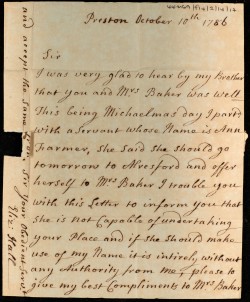 Preston October 10th 1786
Sir
I was very glad to hear by my Brother
that you and Mrs Baker was well
This being Michaelmas day I parted
with a Servant whose Name is Ann
Farmer, She Said She should go
tomorrow to Alresford and offer
herself to Mrs Baker I trouble you
with this Letter to inform you that
she is not Capable of undertaking
your Place and if she should make
use of my Name it is intirely without
any Authority from me, please to
give my best Compliments to Mrs Baker
and accept the Same from Sr Your
Eliz: Hall